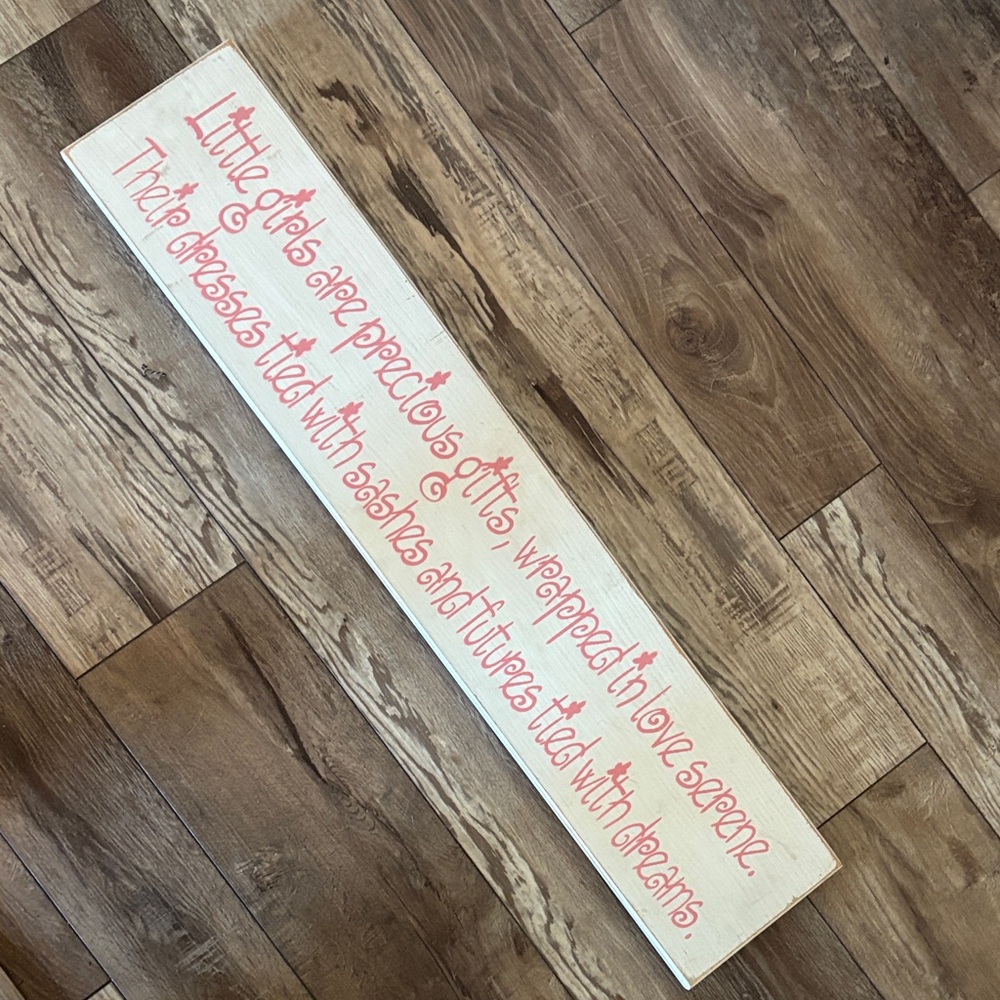 Little girls are precious gifts, wrapped in love serene.
Their dresses tied with sashes and futures tied with dreams.